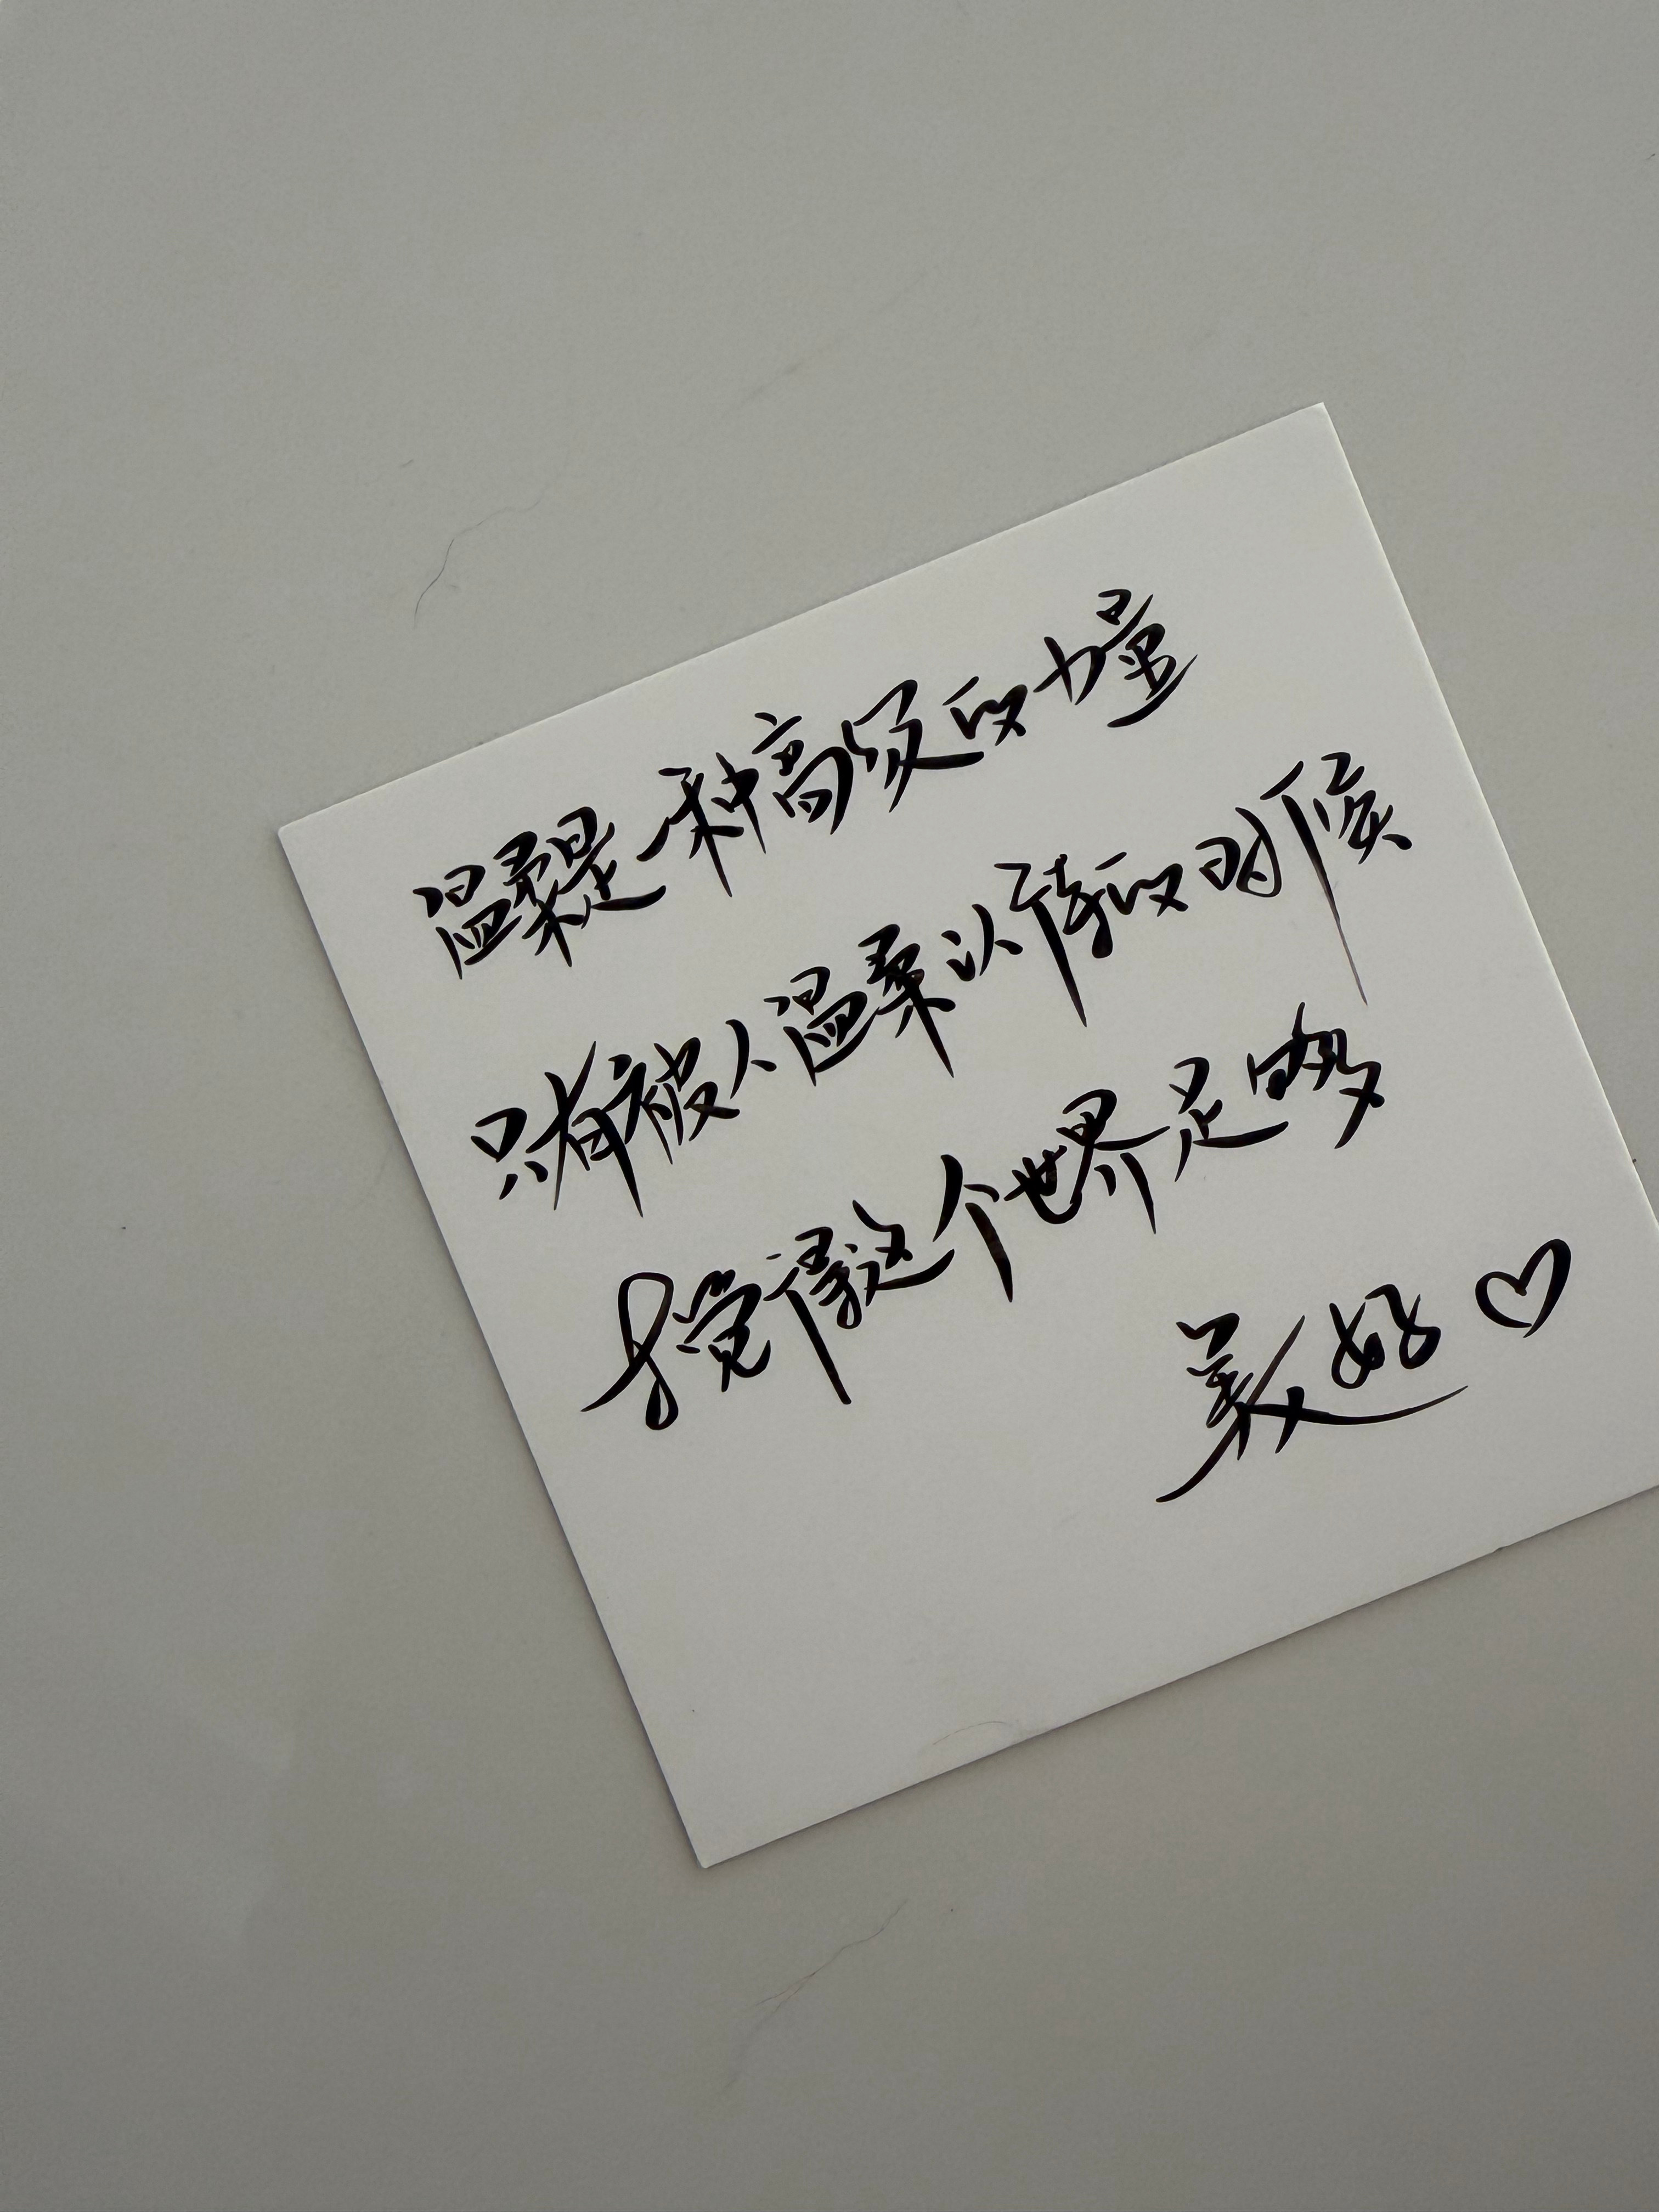 温柔是一种高级的力量
只有被人温柔以待的时候
才觉得这个世界足够
美好♡